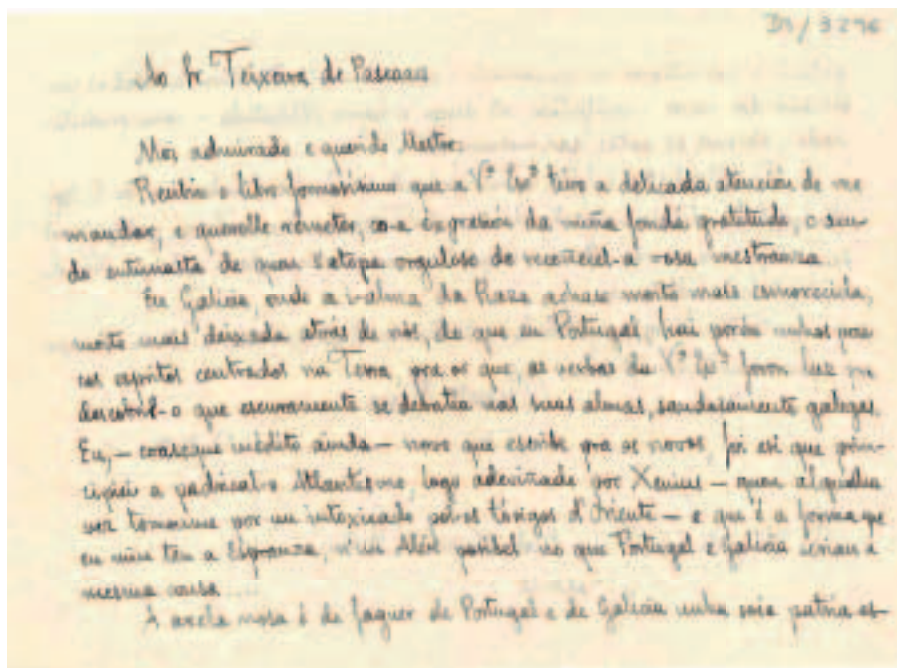 Ao Sr Teixeira de Pascoaes
Moi admirado e querido Mestre:
Recibin o libro fermosisimo que a Vª Exª tivo a delicada atención de me
mandar, e querolle remeter, co-a expresión da miña fonda gratitude, o
do entusiasta de quen s'atopa orguloso de a vosa mestranza.
En Galicia, onde a i-alma da Raza achase moito mais esmorecida,
moito mais deixada atrás de nós, do que en Portugal, hai porén unhos
espritos centrados na Terra, pra os que, as verbas de Vª Exª foron luz
o que escuramente se debatía nas suas almas, saudosamente galegas.
Eu, — coaseque inédito ainda — novo que escribe pra os novos, foi así que prin-
cipiei a o Atlantismo, logo adeviñado por Xenius — quen algunha
vez tomoume por un intoxicado dos d'Oriente — e que é a forma que
en min ten a Espranza, n'un Alén posibel no que Portugal e Galicia serían a
mesma cousa....
A arela nosa é de faguer de Portugal e de Galicia unha soia patria es-